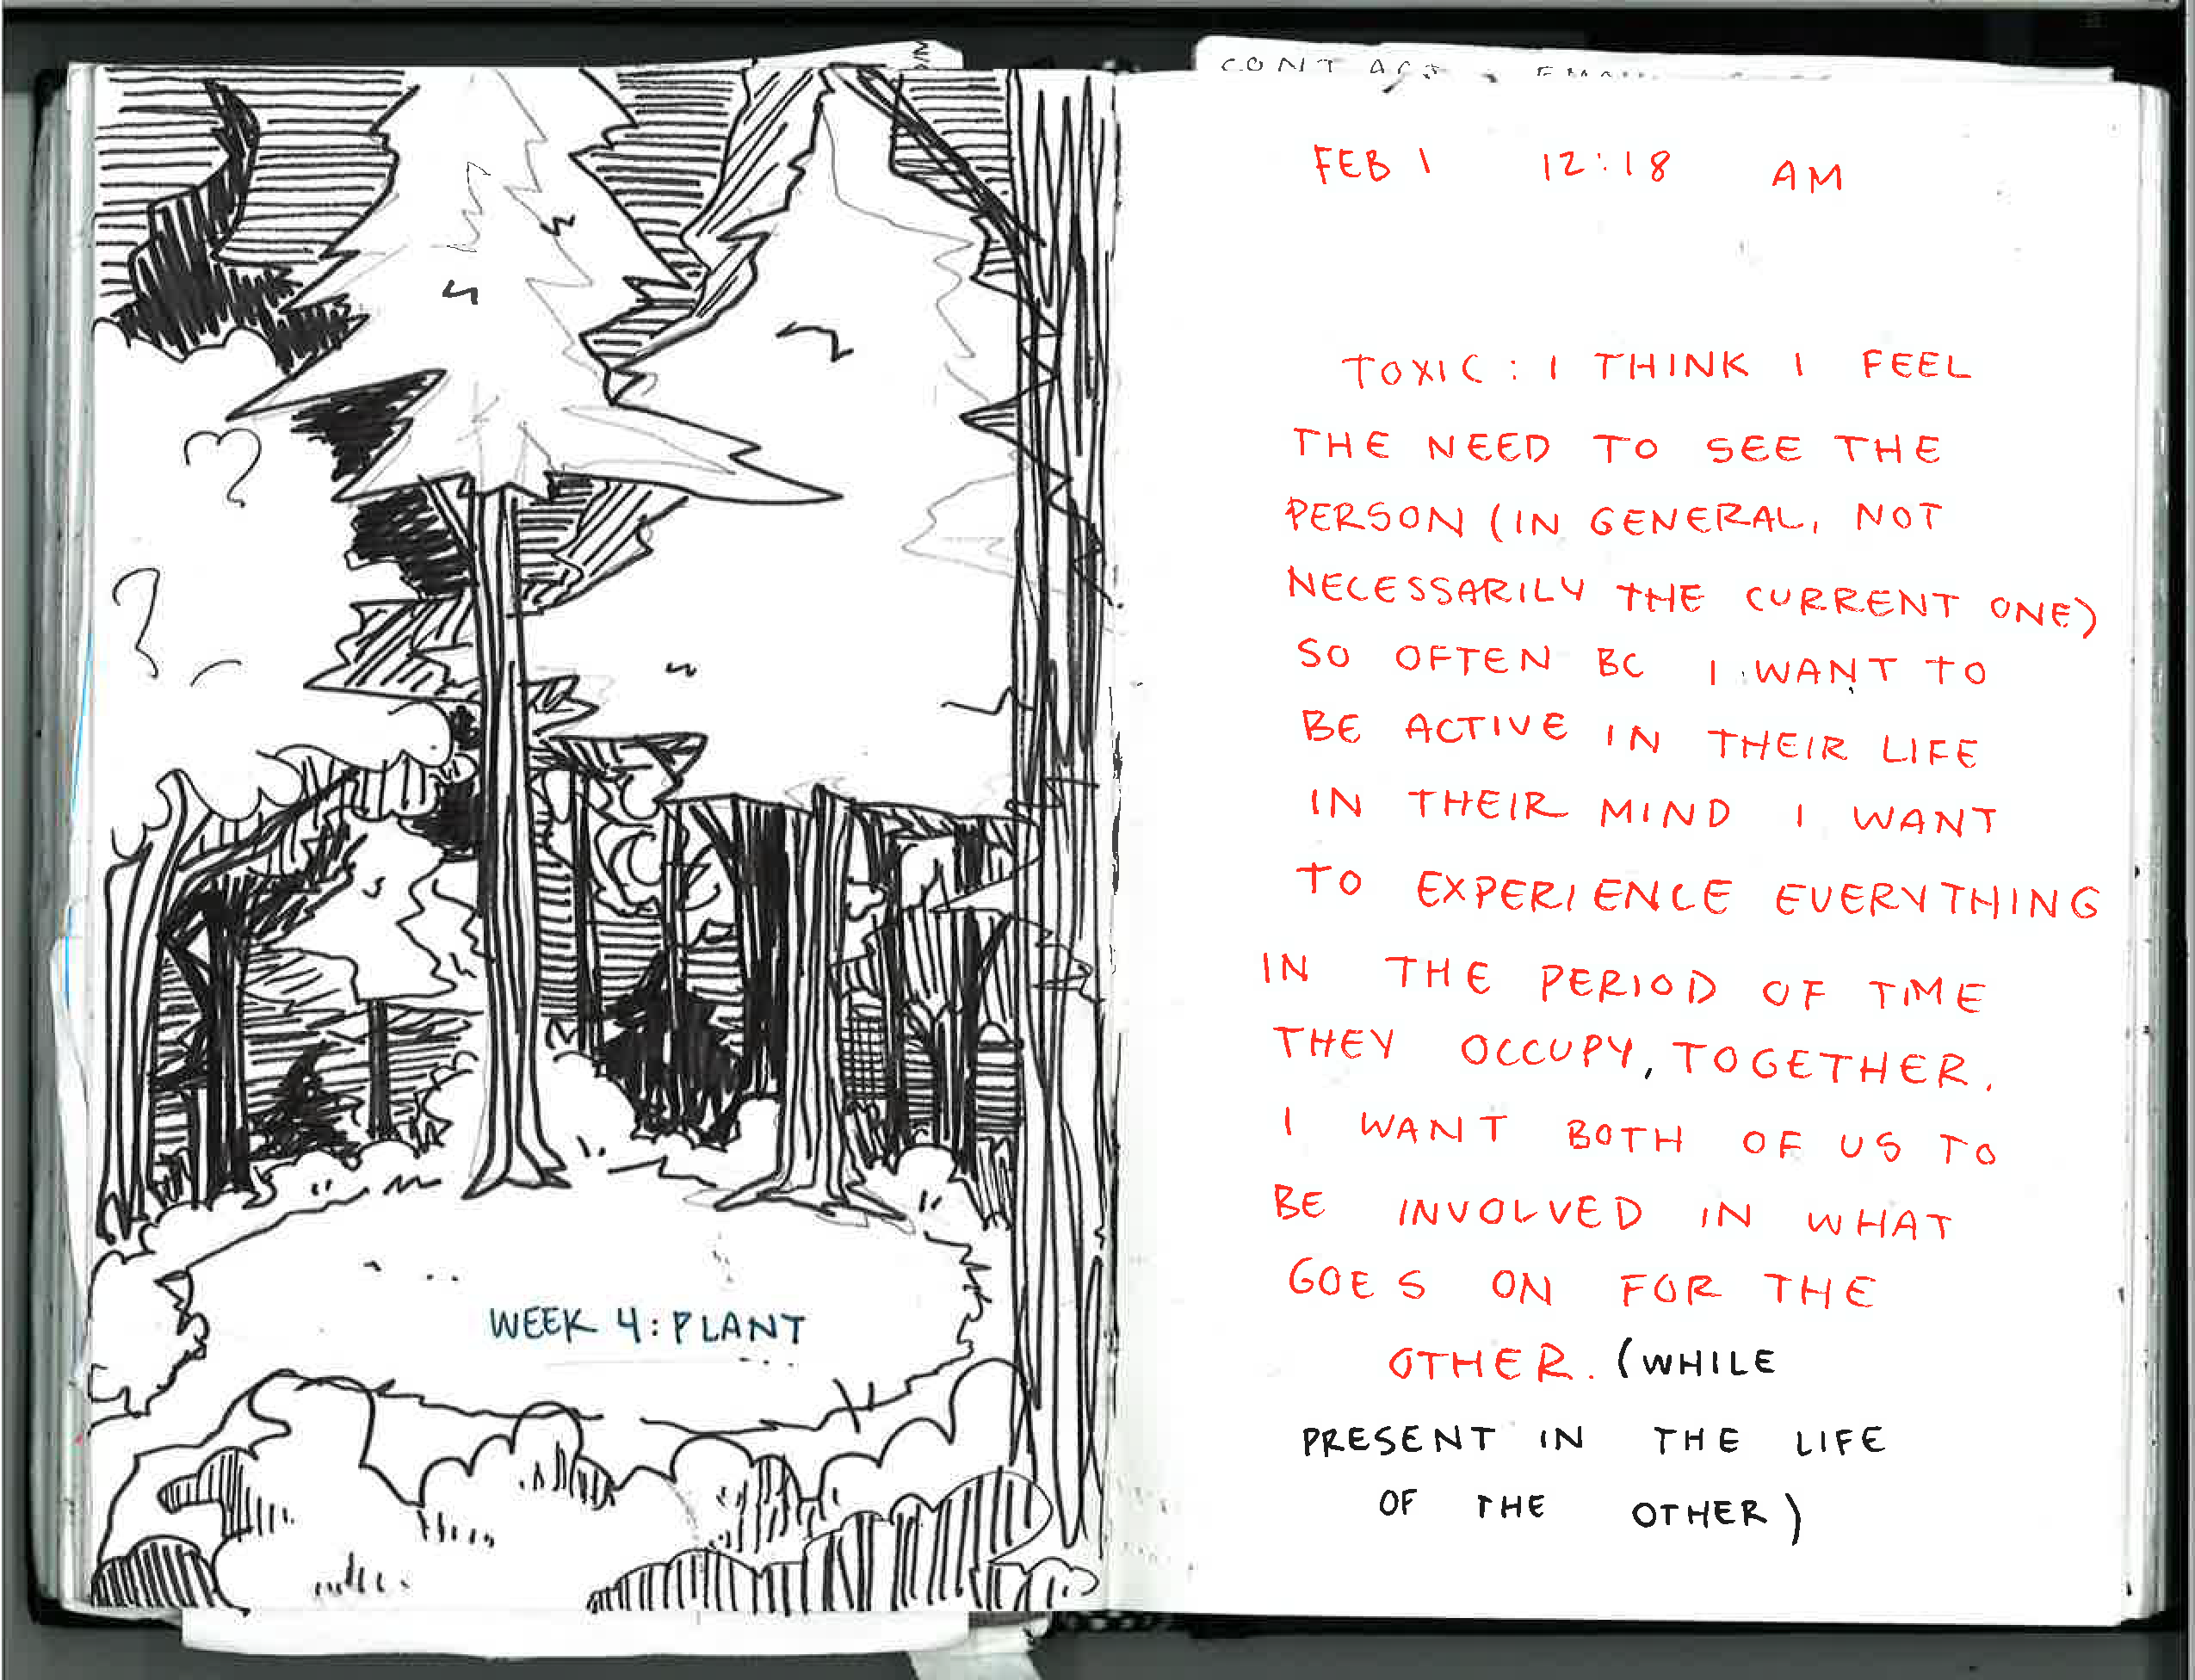 WEEK 4: PLANT
CONTACT
FEB 1 12:18 AM
TOXIC: I THINK I FEEL
THE NEED TO SEE THE
PERSON (IN GENERAL, NOT
NECESSARILY THE CURRENT ONE)
SO OFTEN BC I WANT TO
BE ACTIVE IN THEIR LIFE
IN THEIR MIND I WANT
TO EXPERIENCE EVERYTHING
IN THE PERIOD OF TIME
THEY OCCUPY, TOGETHER.
I WANT BOTH OF US TO
BE INVOLVED IN WHAT
GOES ON FOR THE
OTHER. (WHILE
PRESENT IN THE LIFE
OF THE OTHER)